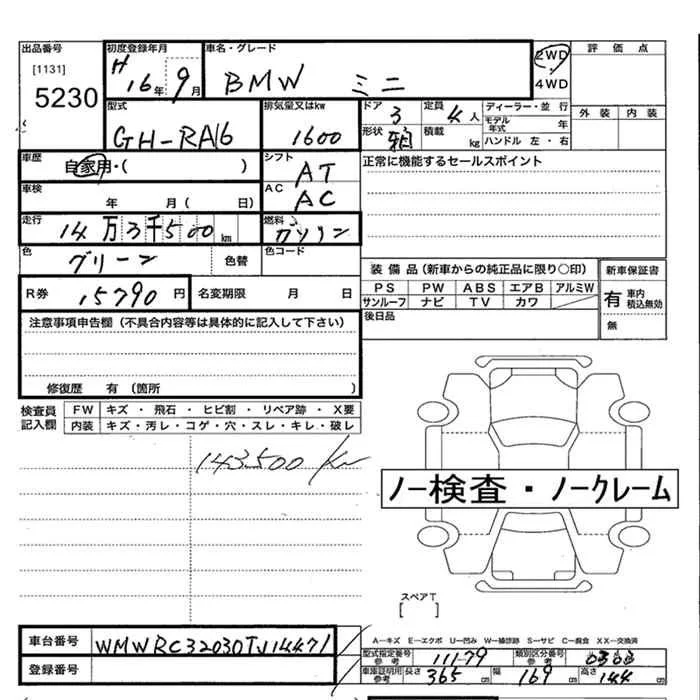 出品番号 初度登録年月 車名・グレード 2WD 評価点
[1131] H 16年 9月 BMW ミニ 4WD
5230
型式 排気量又はkw ドア 3 定員 4人 ディーラー・並行 外装 内装
GH-RA16 1600 形状 積載 kg モデル年式 年
ハンドル 左・右
車歴 自家用・( ) シフト AT 正常に機能するセールスポイント
車検 年 月( 日) AC AC
走行 14万3千500km 燃料 ガソリン
色 グリーン 色替 色コード
装備品(新車からの純正品に限り〇印) 新車保証書
R券 15790円 名変期限 月 日 PS PW ABS エアB アルミW 有 車内積込無効
サンルーフ ナビ TV カワ
注意事項申告欄(不具合内容等は具体的に記入して下さい) 後日品 無
修復歴 有(箇所 )
検査員記入欄 FW キズ・飛石・ヒビ割・リペア跡・X要
内装 キズ・汚レ・コゲ・穴・スレ・キレ・破レ
143500 km
ノー検査・ノークレーム
スペアT
[ ]
車台番号 WMWRC32030TJ14471 A-キズ E-エクボ U-凹み W-補修跡 S-サビ C-腐食 XX-交換済
登録番号 型式指定番号参考 11179 類別区分番号参考
車庫証明用参考 長さ 365cm 幅 169cm 高さ 144cm